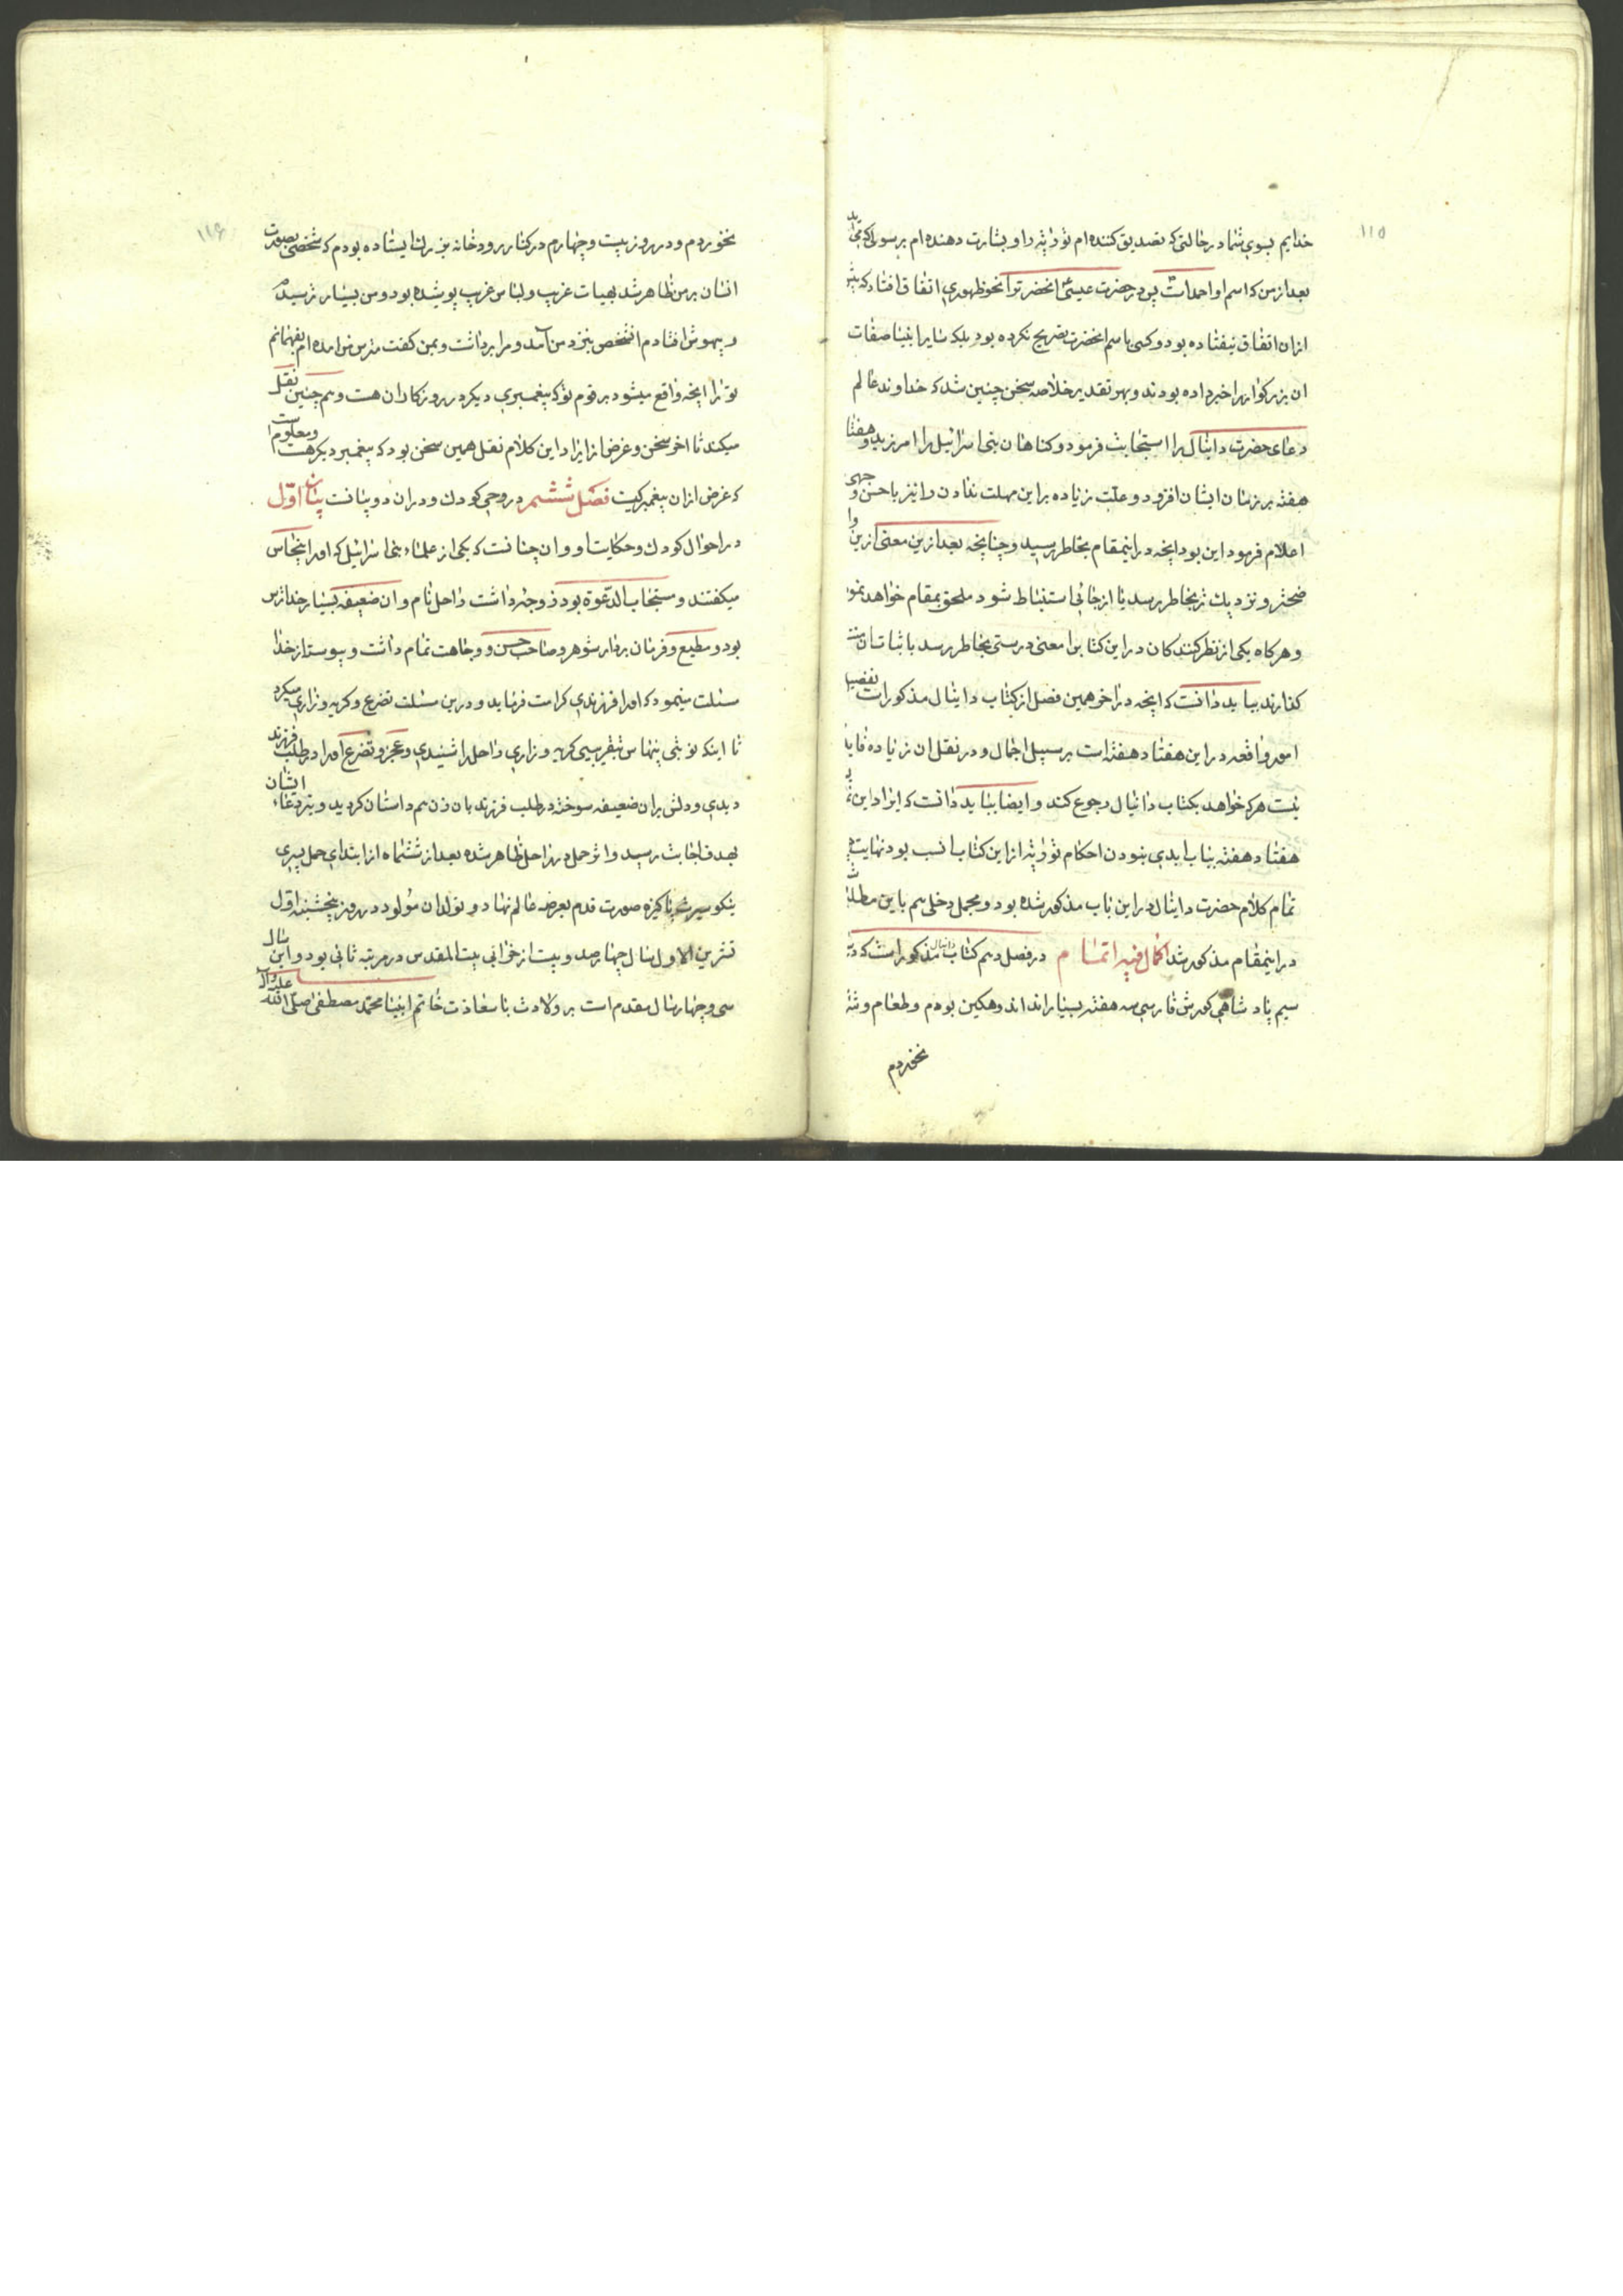 ۱۱۵
خدایم بسوی شما در حالتی که تصدیق کننده ام توریة را و بشارت دهنده ام برسولی که
بعد از من که اسم او احمد است پس در حضرت عیسی انحضرت را انحو ظهوری اتفاق افتاد که پیش
ازان اتفاق نیفتاده بود و کسی باسم انحضرت تصریح نکرده بود بلکه سایر انبیا صفات
ان بزرکوار را خبر داده بودند و بهر تقدیر خلاصه سخن چنین شد که خداوند عالم
دعای حضرت دانیال را استجابت فرمود و کناهان بنی اسرائیل را امرزید و هفتاد
هفته بر زمان ایشان افزود و علت زیاده براین مهلت ندادن را نیز باحسن وجهی
اعلام فرمود این بود انچه در اینمقام بخاطر رسید و چنانچه بعد ازین معنی ازین وا
ضحتر و نزدیک تر بخاطر رسد یا از جائی استنباط شود ملحق بمقام خواهد نمود
و هرکاه یکی از نظر کنندکان در این کتاب را معنی درستی بخاطر رسد باثبات ان
کذارند بباید دانست که انچه در اخر همین فصل از کتاب دانیال مذکور است تفصیل
امور واقعه در این هفتاد هفته است بر سبیل اجمال و در نقل ان زیاده فایده
نیست هرکه خواهد بکتاب دانیال رجوع کند و ایضا بباید دانست که ایراد این
هفتاد هفته بباب ابدی نبودن احکام توریة از این کتاب انسب بود نهایت
تمام کلام حضرت دانیال در این باب مذکور شده بود و مجمل دخلی هم باین مطلب
در اینمقام مذکور شد اکمال فیه اتمام در فصل دهم کتاب دانیال مذکور است که در
سیم پادشاهی کورش فارسی سه هفته بسیار اندوهکین بودم و طعام و
نخوردم
۱۱۶
نخوردم و در روز بیست و چهارم در کنار رودخانه بزرک ایستاده بودم که شخصی بصورت
انسان بر من ظاهر شد بهیات غریب و لباس غریب پوشیده بود و من بسیار ترسیدم
و بیهوش افتادم انشخص بنزد من امد و مرا برداشت و بمن کفت مترس من امده ام بفهمانم
تو را انچه واقع میشود بر قوم تو که پیغمبری دیکر در روزکاران هست و هم چنین نقل
میکند تا اخر سخن و غرض از ایراد این کلام نقل همین سخن بود که پیغمبر دیکر هست و معلوم است
که غرض ازان پیغمبر کیست فصل ششم در وحی کودک و دران دو بیانست بیان اول
در احوال کودک و حکایت او و ان چنانست که یکی از علماء بنی اسرائیل که او را پنحاس
میکفتند و مستجاب الدعوة بود زوجه داشت راحل نام و ان ضعیفه بسیار خداترس
بود و مطیع و فرمان بردار شوهر و صاحب حسن و وجاهت تمام داشت و پیوسته از خدا
مسئلت مینمود که او را فرزندی کرامت فرماید و درین مسئلت تضرع و کریه و زاری میکرد
تا اینکه نوبتی پنحاس بتقریبی کریه و زاری راحل را شنیدی و عجز و تضرع او را در طلب فرزند
دیدی و دلش بران ضعیفه سوخته در طلب فرزند بان زن هم داستان کردید و تیر دعاء ایشان
بهدف اجابت رسید و اثر حمل در راحل ظاهر شده بعد از ششماه از ابتدای حمل پسری
نیکو سیرت پاکیزه صورت قدم بعرصه عالم نهاد و تولد ان مولود در روز پنجشنبه اول
تشرین الاول سال چهارصد و بیست از خرابی بیت المقدس در مرتبه ثانی بود و این سال
سی و چهار سال مقدم است بر ولادت با سعادت خاتم انبیا محمد مصطفی صلی الله علیه و اله